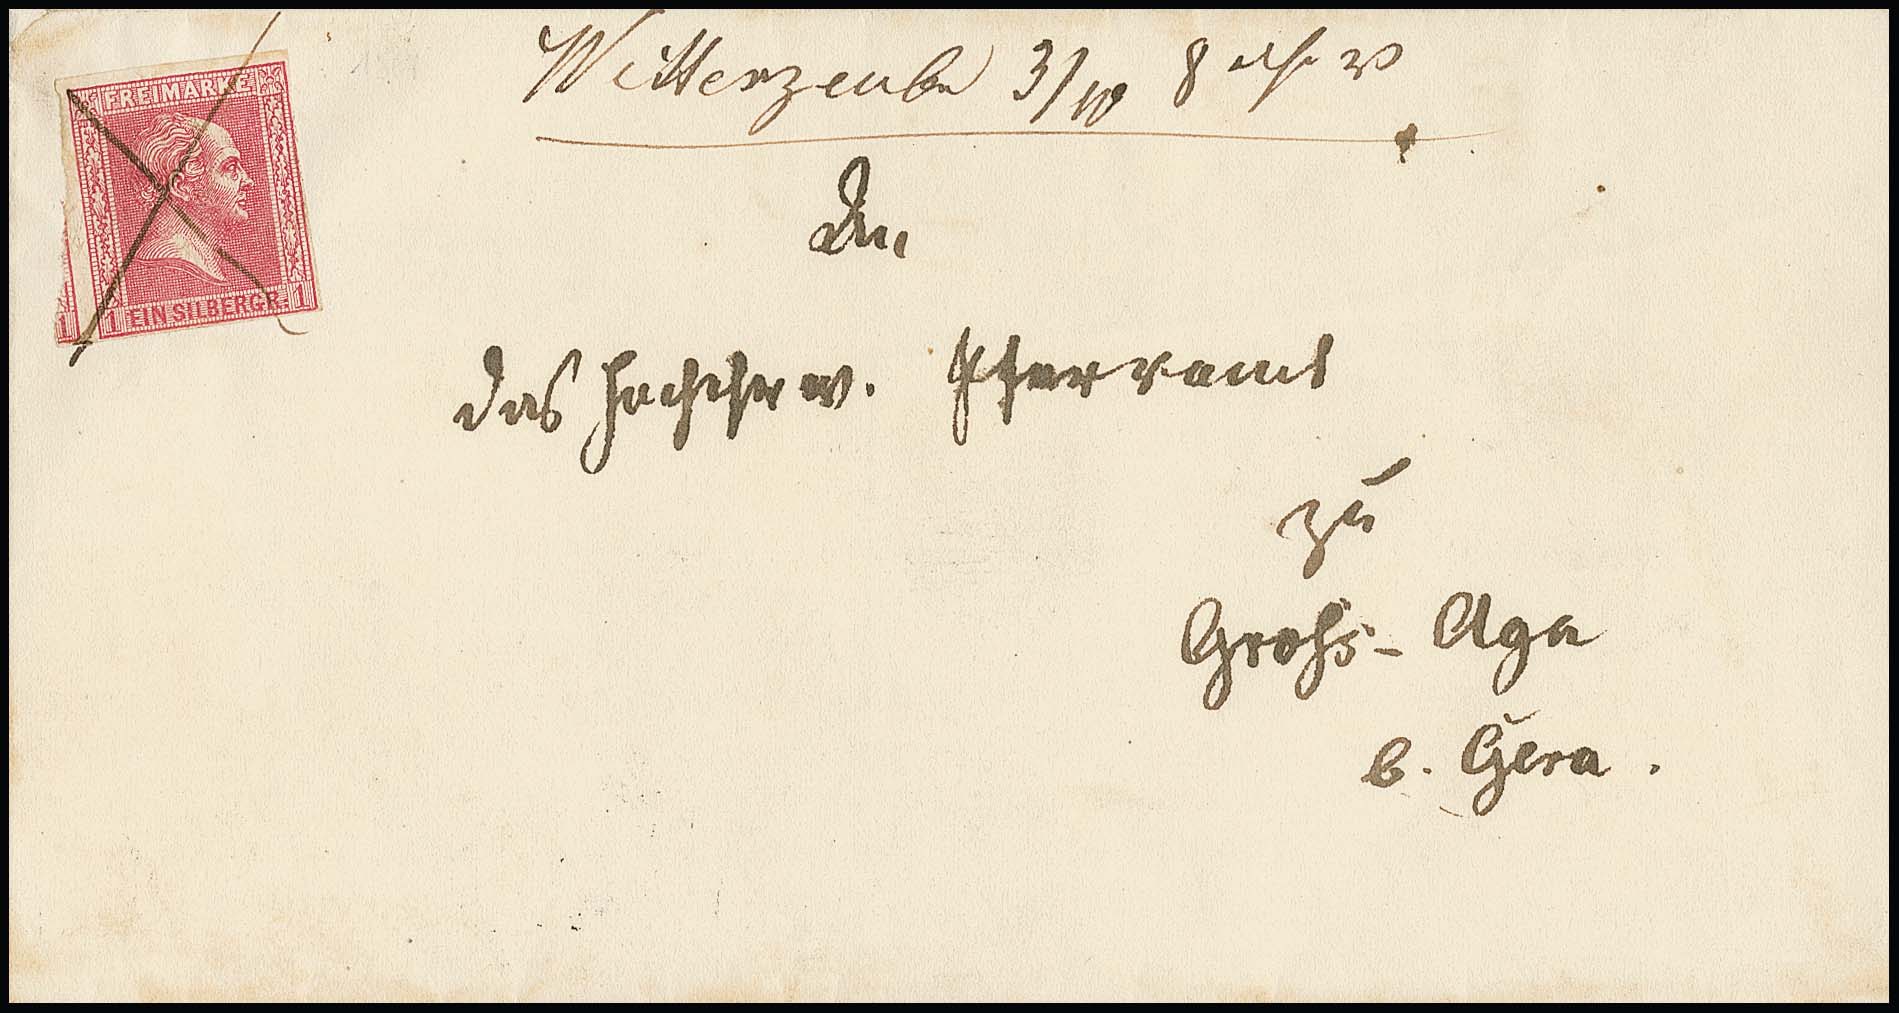 Wetterzeube 3/10 8 Uhr V
FREIMARKE
1 EIN SILBERGR. 1
1
An
das Hochehrw. Pfarramt
zu
Grohs-Aga
b. Gera.